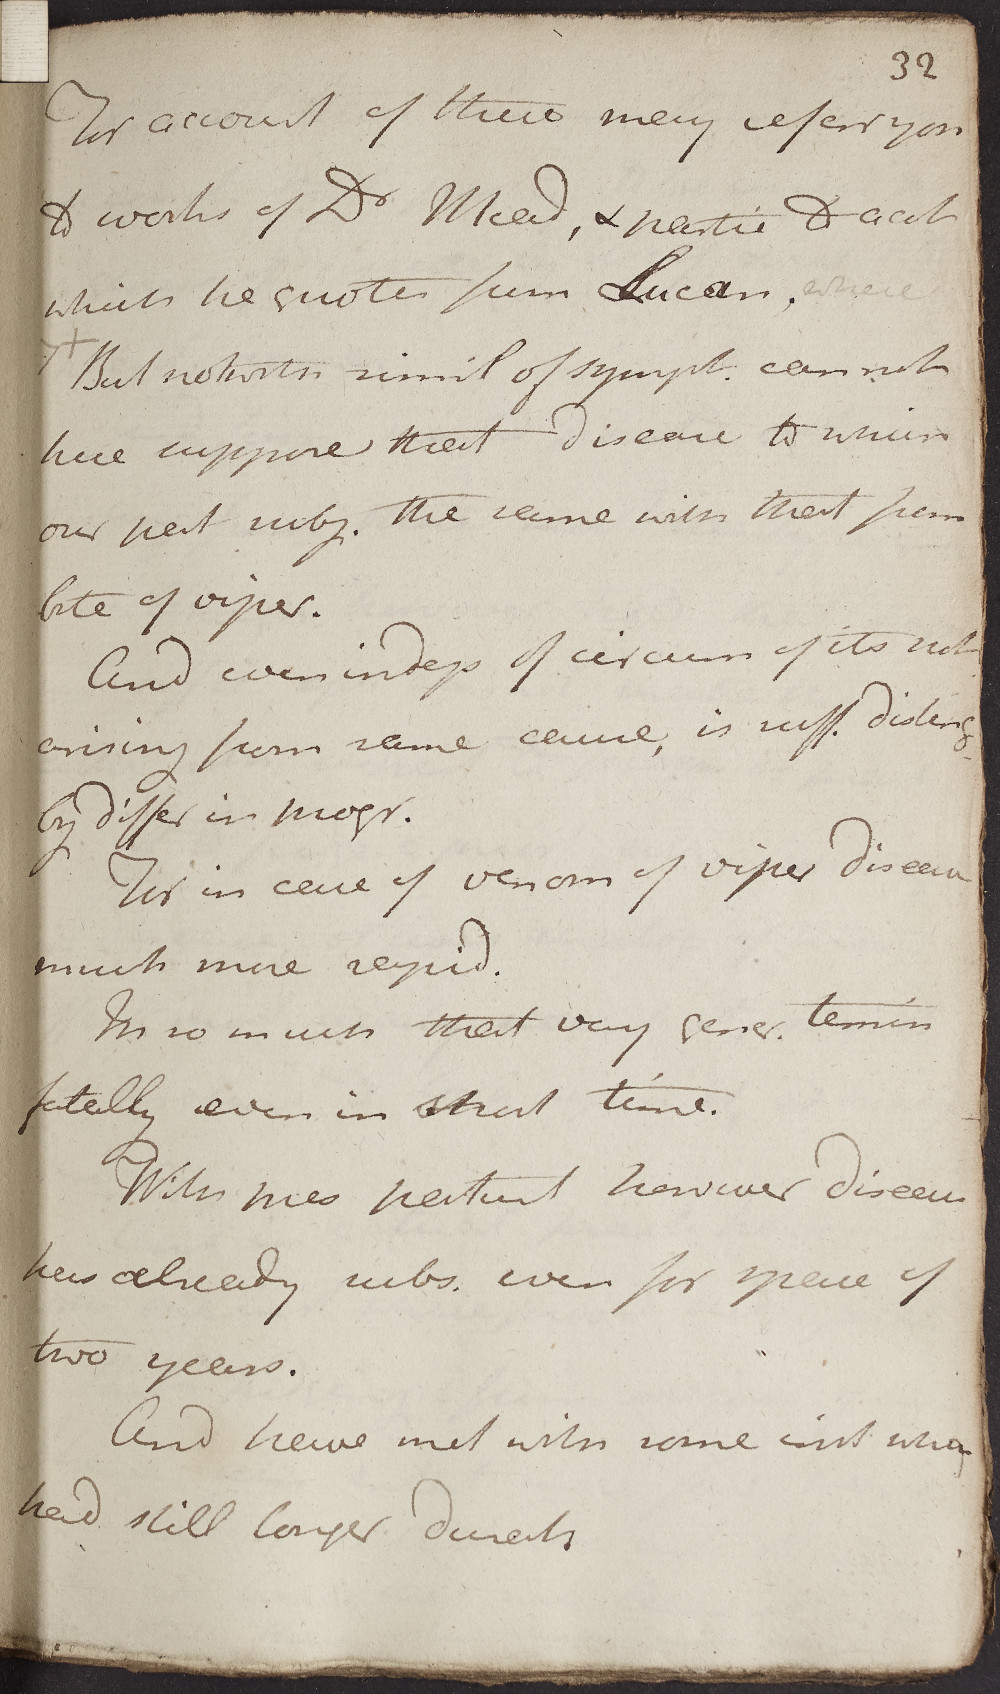 32
For account of these may refer you
to works of Dr Mead, & partic to acct
which he quotes from Lucan, where
+
But notwith simil of sympt. cannot
here suppose that disease to which
our pat subj. the same with that from
bite of viper.
And even indep of circum of its not
arising from same cause, is suff. disting
by differ in progr.
For in case of venom of viper disease
much more rapid.
In so much that very gener. termin
fatally even in short time.
With pres patient however disease
has already subs. even for space of
two years.
And have met with some inst where
had still longer durat